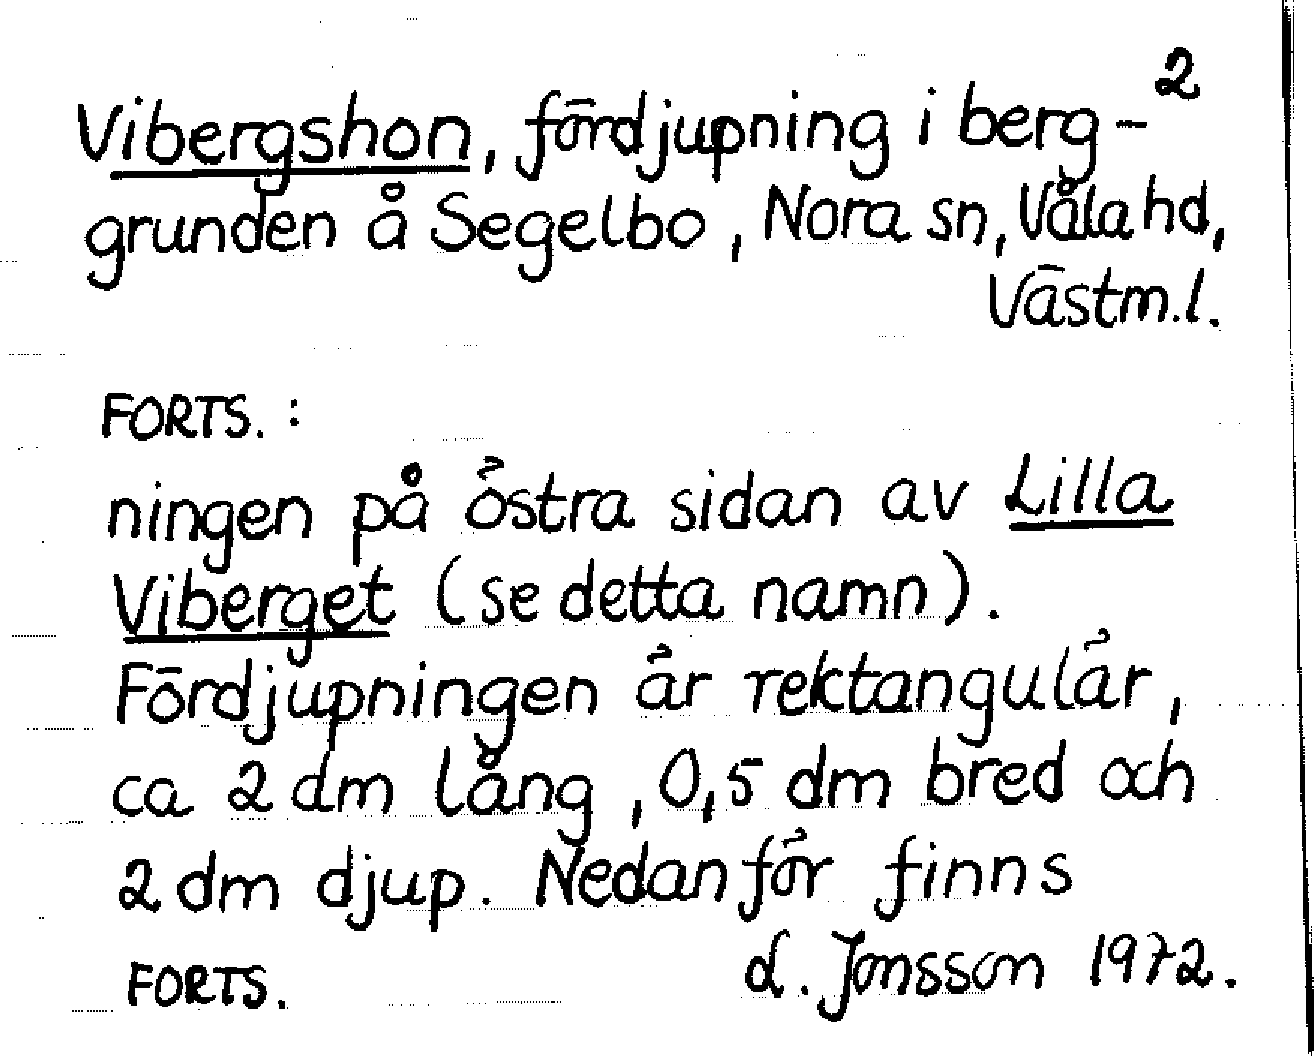 2
Vibergshon, fördjupning i berg-
grunden å Segelbo, Nora sn, Våla hd,
Västm.l.
FORTS. :
ningen på östra sidan av Lilla
Viberget (se detta namn).
Fördjupningen är rektangulär,
ca 2 dm lång, 0,5 dm bred och
2 dm djup. Nedanför finns
FORTS. L. Jonsson 1972.